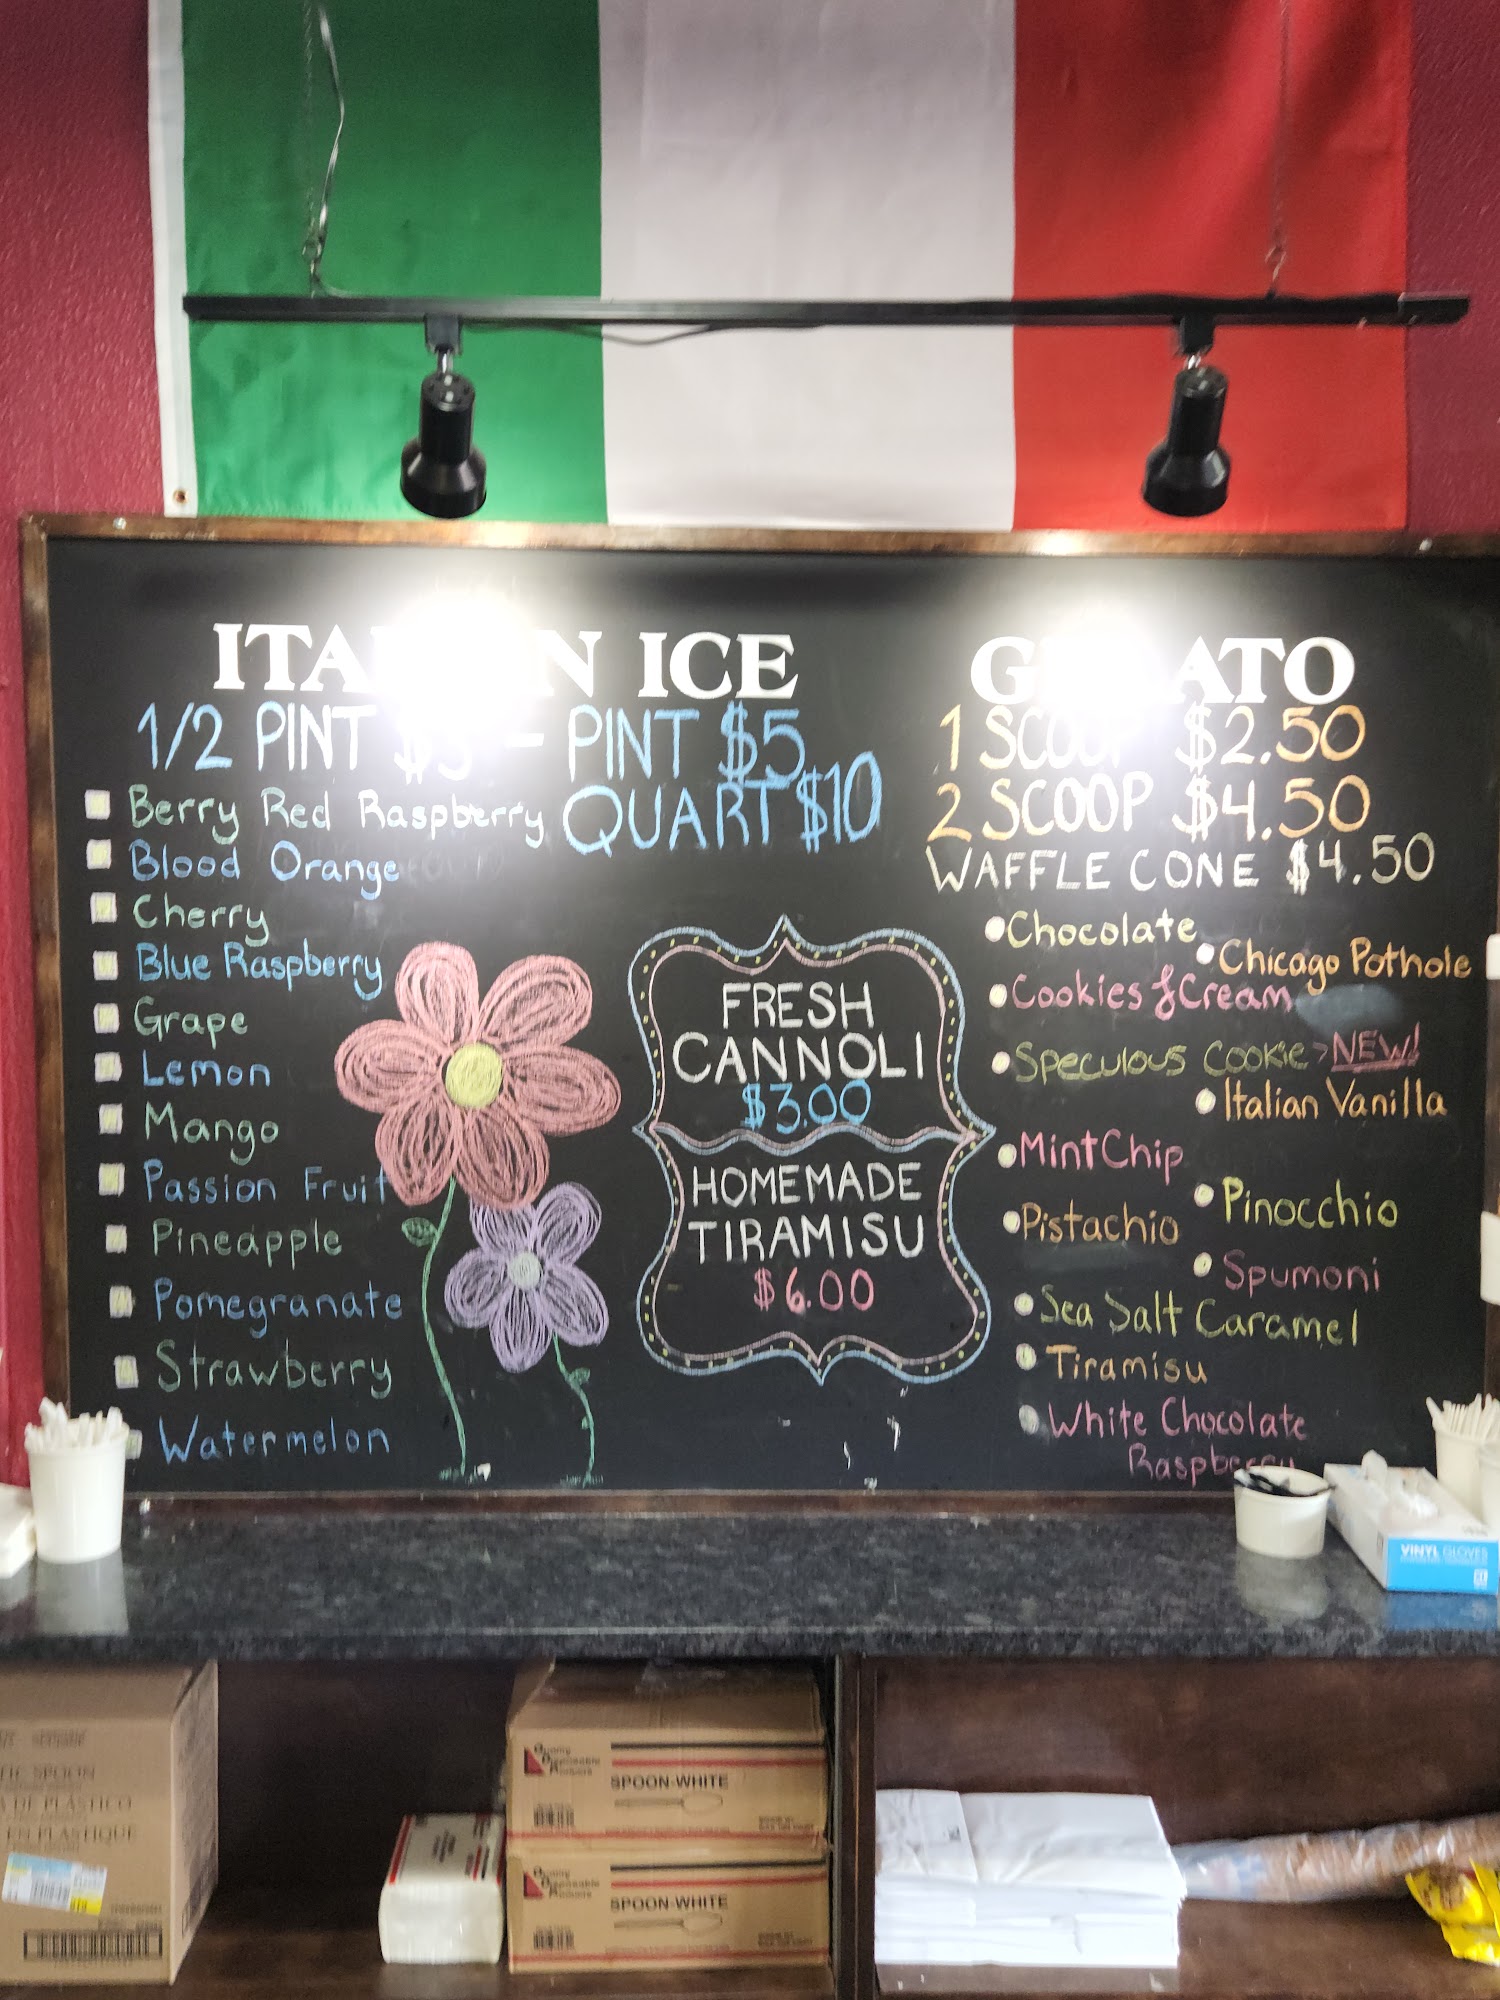 ITALIAN ICE
1/2 PINT $3 - PINT $5
QUART $10
Berry Red Raspberry
Blood Orange
Cherry
Blue Raspberry
Grape
Lemon
Mango
Passion Fruit
Pineapple
Pomegranate
Strawberry
Watermelon
FRESH
CANNOLI
$3.00
HOMEMADE
TIRAMISU
$6.00
GELATO
1 SCOOP $2.50
2 SCOOP $4.50
WAFFLE CONE $4.50
Chocolate
Chicago Pothole
Cookies & Cream
Speculous Cookie > NEW!
Italian Vanilla
Mint Chip
Pinocchio
Pistachio
Spumoni
Sea Salt Caramel
Tiramisu
White Chocolate
Raspberry
VINYL GLOVES
SPOON
A DE PLÁSTICO
EN PLASTIQUE
SPOON-WHITE
SPOON-WHITE